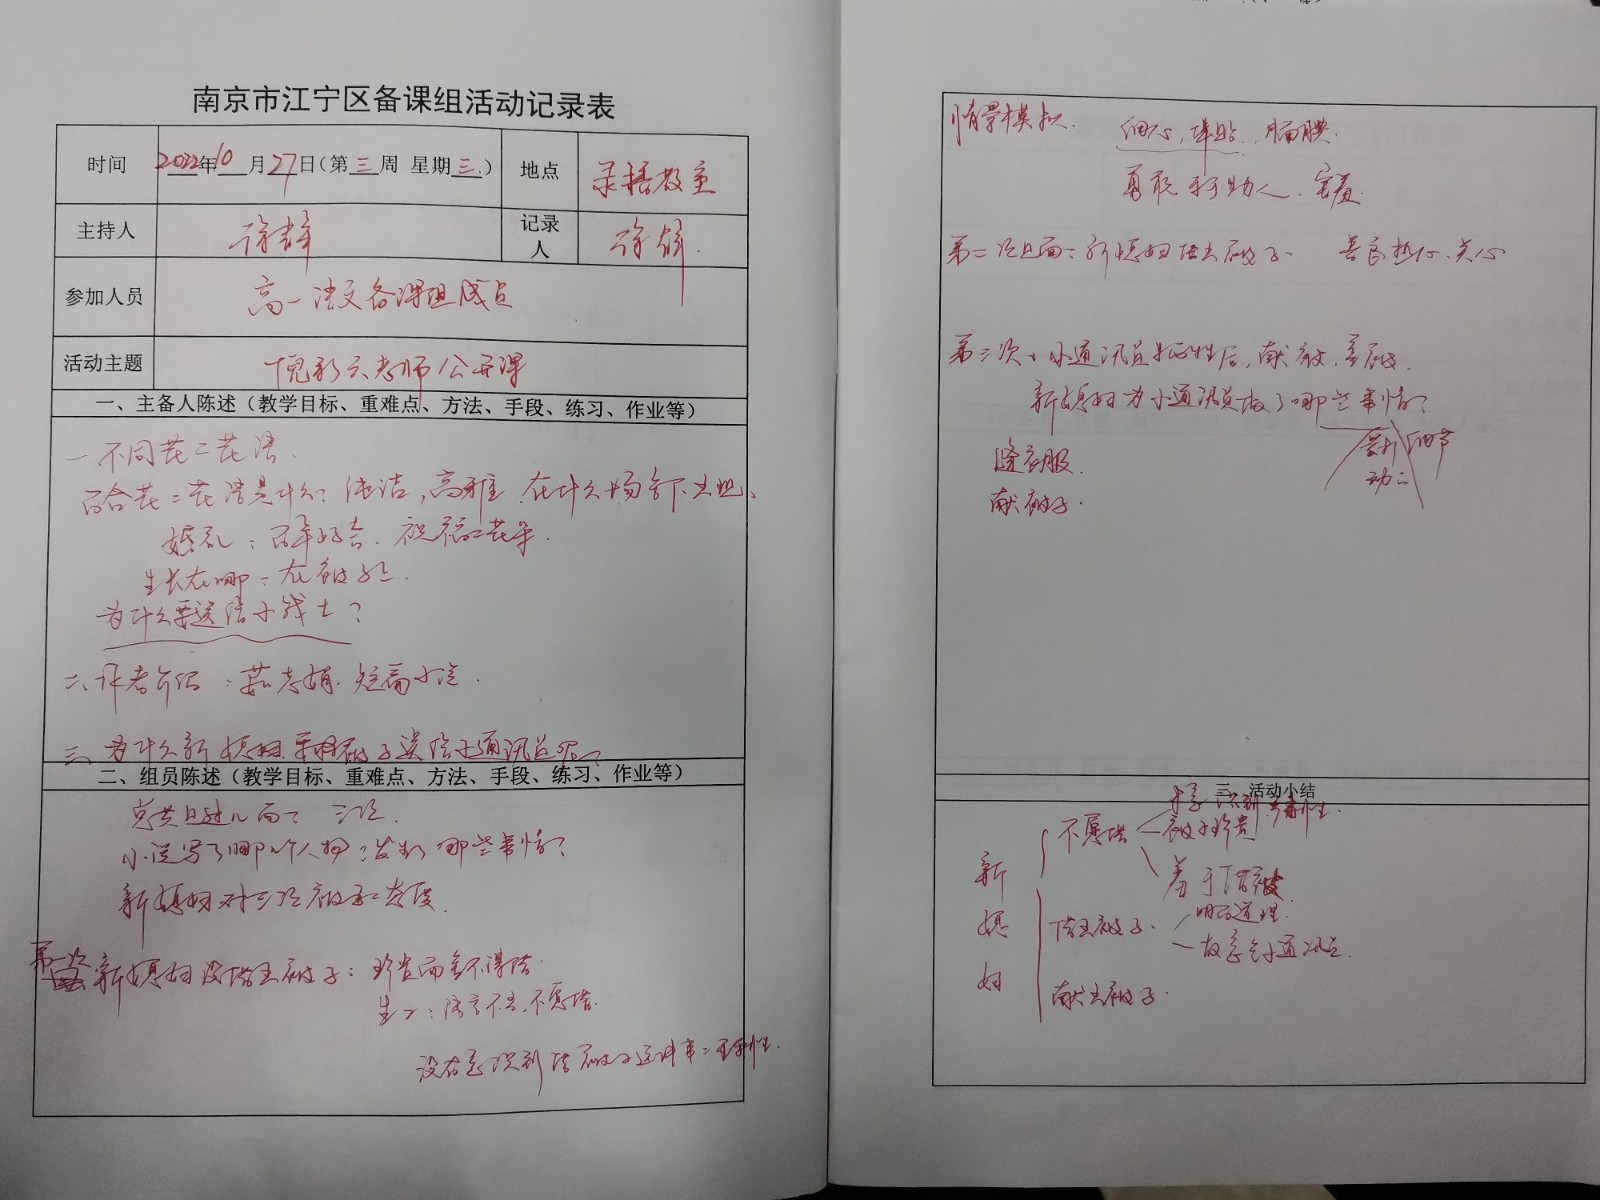 南京市江宁区备课组活动记录表
时间 2022年10月27日(第三周 星期三) 地点 录播教室
主持人 徐 记录人 徐
参加人员 高一语文备课组成员
活动主题 倪彩云老师公开课
一、主备人陈述（教学目标、重难点、方法、手段、练习、作业等）
一、不同花二花语、
百合花二花语是什么？纯洁，高雅 在什么场合下出现、
婚礼：百年好合、祝福二花朵.
生长在哪：在被子上.
为什么要送给小战士？
二、作者介绍：茹志娟.短篇小说.
三、为什么新媳妇要将被子送给小通讯员呢？
二、组员陈述（教学目标、重难点、方法、手段、练习、作业等）
总共见过几面？三次.
小说写了哪几个人物？发生了哪些事情？
新媳妇对三次被子二态度.
第一次 新媳妇没借出被子：珍贵而舍不得借.
生2：语言不当，不愿借.
没有意识到借被子这件事二重要性.
情景模拟. 细心，体贴，腼腆.
勇敢 乐于助人、害羞
第二次见面：新媳妇借出被子. 善良热心、关心
第三次、小通讯员牺牲后，献被、盖被.
新媳妇为小通讯员做了哪些事情？
缝衣服. 细节
献被子. 动二
三、活动小结
新媳妇
不愿借 没意识到 重要性.
被子珍贵
羞于
借出被子. 明白道理.
故意气小通讯员.
献出被子.